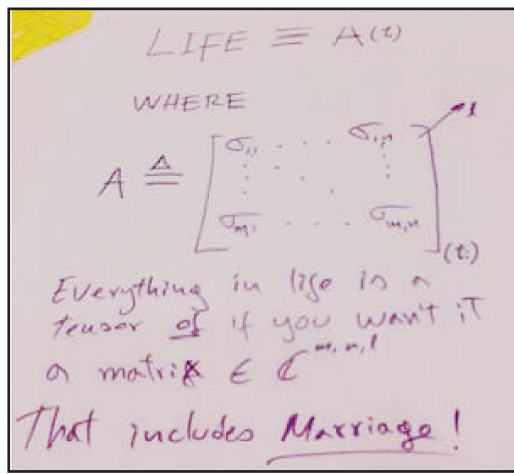 LIFE ≡ A(t)
WHERE
A ≜ [σ₁,₁ . . . σ₁,n
⋮ ⋱ ⋮
σm,₁ . . . σm,n] (t) l
Everything in life is a
tensor of if you want it
a matrix ∈ ℂ^m,n,l
That includes Marriage!